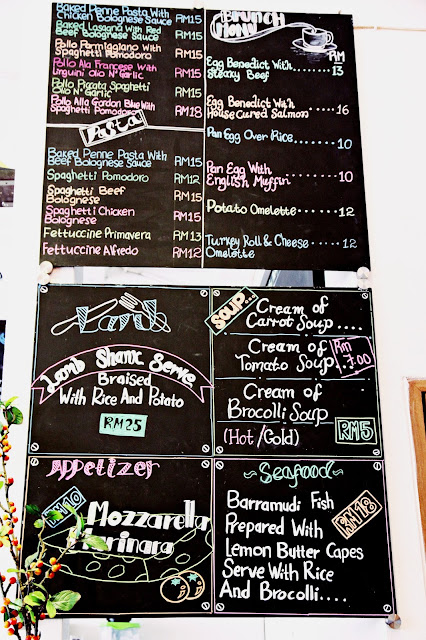 Baked Penne Pasta With RM15
Chicken Bolognese Sauce
Baked Lasagna With Red RM15
Beef Bolognese Sauce
Pollo Parmiggiano With RM15
Spaghetti Pomodoro
Pollo Ala Francese With RM15
Linguini Olio N' Garlic
Pollo Picata Spaghetti RM15
Olio N' Garlic
Pollo Alla Gordon Blue With RM18
Spaghetti Pomodoro
Pasta
Baked Penne Pasta With RM15
Beef Bolognese Sauce
Spaghetti Pomodoro RM12
Spaghetti Beef RM15
Bolognese
Spaghetti Chicken RM15
Bolognese
Fettuccine Primavera RM13
Fettuccine Alfredo RM12
Brunch
Menu
RM
Egg Benedict With ...... 13
Streaky Beef
Egg Benedict With ...... 16
House Cured Salmon
Pan Egg Over Rice ...... 10
Pan Egg With ...... 10
English Muffin
Potato Omelette ...... 12
Turkey Roll & Cheese ..... 12
Omelette
Lamb
Lamb Shank Serve
Braised
With Rice And Potato
RM25
SOUP
Cream of
Carrot Soup ....
Cream of
Tomato Soup
Rm
7.00
Cream of
Brocolli Soup
(Hot/Cold)
RM5
Appetizer
RM10
Mozzarella
Marinara
~Seafood~
Barramudi Fish
Prepared With
RM18
Lemon Butter Capes
Serve With Rice
And Brocolli....